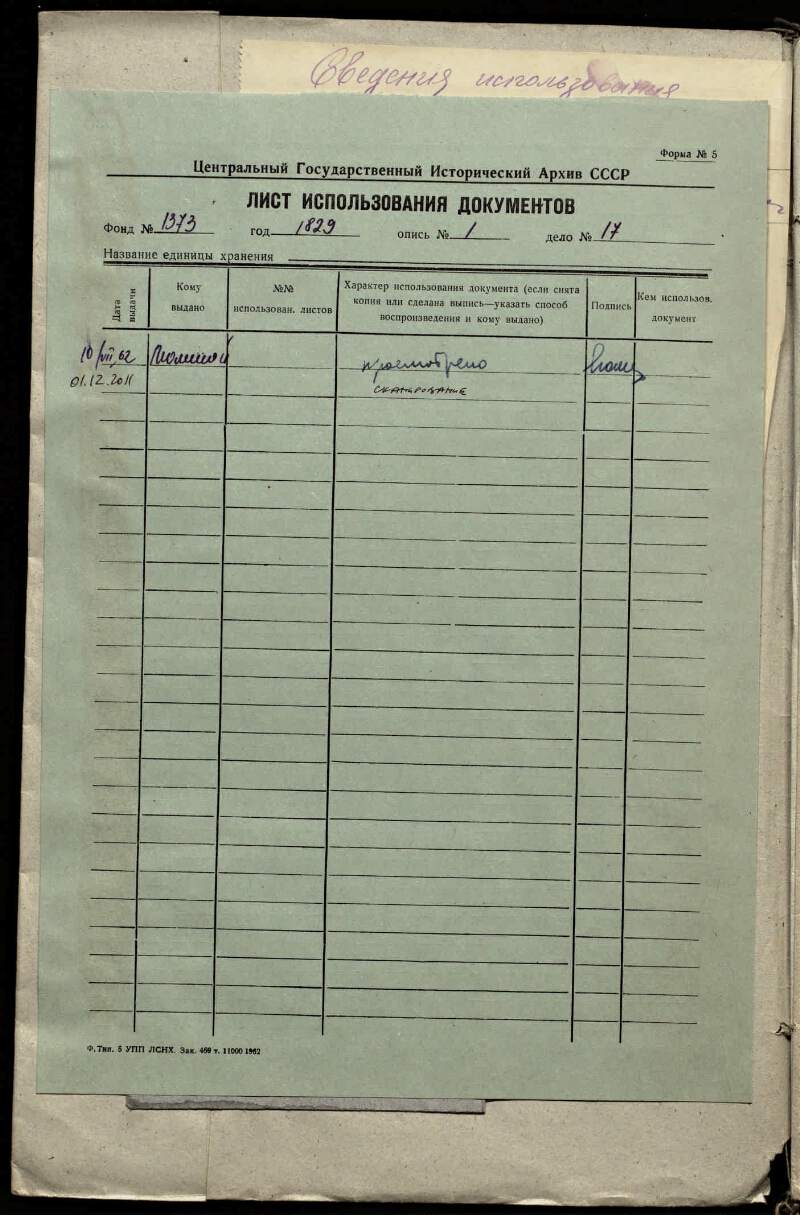 Сведения использования
Форма № 5
Центральный Государственный Исторический Архив СССР
ЛИСТ ИСПОЛЬЗОВАНИЯ ДОКУМЕНТОВ
Фонд № 1373 год 1829 опись № 1 дело № 17
Название единицы хранения
Дата выдачи
Кому выдано
№№ использован. листов
Характер использования документа (если снята
копия или сделана выпись—указать способ
воспроизведения и кому выдано)
Подпись
Кем использов. документ
10/VII 62 просмотрено
01.12.2011 сканирование
Ф. Тип. 5 УПП ЛСНХ. Зак. 469 т. 11000 1962